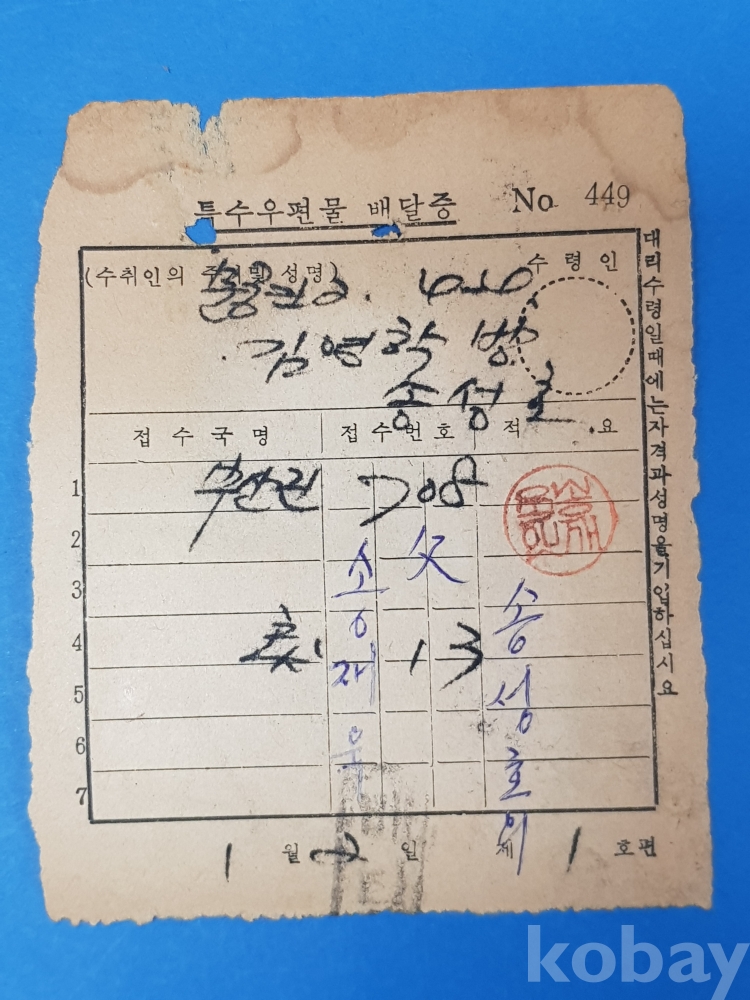 특수우편물 배달증 No 449
(수취인의 주소및 성명) 수령인
김영학 방
송성호
접수국명 접수번호 적요
부산진 708
1
2
3
4 13
5
6
7
父
송재욱
송성호의
1월 2일 제 1 호편
대리수령일때에는자격과성명을기입하십시요
kobay